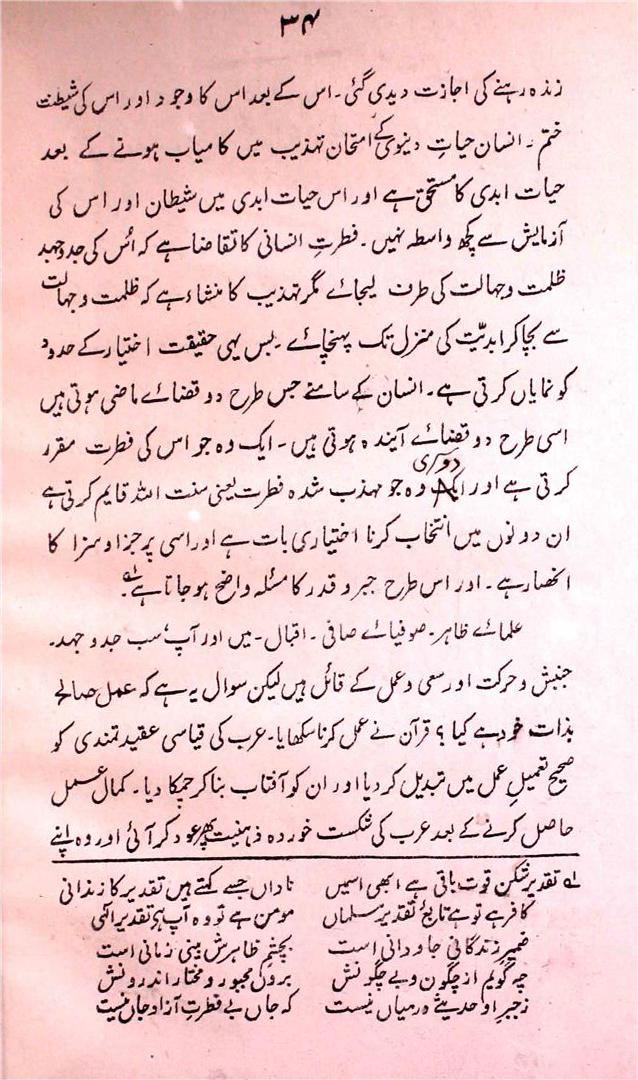 ۳۴
زندہ رہنے کی اجازت دیدی گئی۔ اس کے بعد اس کا وجود اور اس کی شیطنت
ختم۔ انسان حیاتِ دینوی کے امتحان تہذیب میں کامیاب ہونے کے بعد
حیات ابدی کا مستحق ہے اور اس حیات ابدی میں شیطان اور اس کی
آزمایش سے کچھ واسطہ نہیں۔ فطرتِ انسانی کا تقاضا ہے کہ اُس کی جدوجہد
ظلمت وجہالت کی طرف لیجائے مگر تہذیب کا منشاء ہے کہ ظلمت وجہالت
سے بچا کر ابدیّت کی منزل تک پہنچائے۔ بس یہی حقیقت اختیار کے حدود
کو نمایاں کرتی ہے۔ انسان کے سامنے جس طرح دو قضائے ماضی ہوتی ہیں
اسی طرح دو قضائے آیندہ ہوتی ہیں۔ ایک وہ جو اس کی فطرت مقرر
کرتی ہے اور دوسری وہ جو مہذب شدہ فطرت یعنی سنت اللہ قایم کرتی ہے
ان دونوں میں انتخاب کرنا اختیاری بات ہے اور اسی پر جزا و سزا کا
انحصار ہے۔ اور اس طرح جبر و قدر کا مسئلہ واضح ہو جاتا ہے۔ ۱ے
علمائے ظاہر۔ صوفیائے صافی۔ اقبال۔ میں اور آپ سب جدوجہد۔
جنبش و حرکت اور سعی و عمل کے قائل ہیں لیکن سوال یہ ہے کہ عمل صالح
بذات خود ہے کیا؟ قرآن نے عمل کرنا سکھایا۔ عرب کی قیاسی عقیدتمندی کو
صحیح تعمیلِ عمل میں تبدیل کر دیا اور ان کو آفتاب بنا کر چمکا دیا۔ کمال عمل
حاصل کرنے کے بعد عرب کی شکست خوردہ ذہنیت پھر عود کر آئی اور وہ اپنے
۱ے تقدیر شکن قوت باقی ہے ابھی اسمیں ناداں جسے کہتے ہیں تقدیر کا زندانی
کافر ہے تو ہے تابع تقدیر مسلماں مومن ہے تو وہ آپ ہے تقدیر الٰہی
ضمیرِ زندگانی جاودانی است بچشم ظاہرش بینی زمانی است
چہ گویم از چگون و بے چگونش بروں مجبور و مختار اندرونش
زجبرِ او حدیثے درمیاں نیست کہ جاں بے فطرتِ آزاد جاں نیست